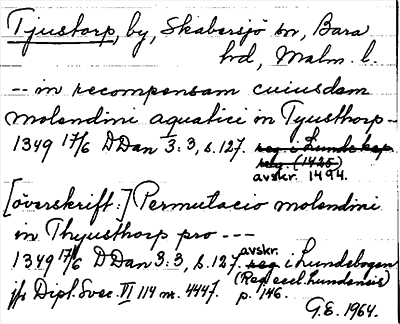 Tjustorp, by, Skabersjö sn, Bara
hd, Malm. l.
-- in recompensam cuiusdam
molendini aquatici in Tyusthorp --
1349 17/6 DDan 3:3, s. 127. reg. i Lunde kap
reg. (1425)
avskr. 1494.
[överskrift:] Permutacio molendini
in Thyusthorp pro ---
1349 17/6 DDan 3:3, s. 127. avskr. reg i Lundebogen
(Reg. eccl. Lundensis)
jfr Dipl. Svec. VI 114 nr. 4447. p. 146.
G.E. 1964.